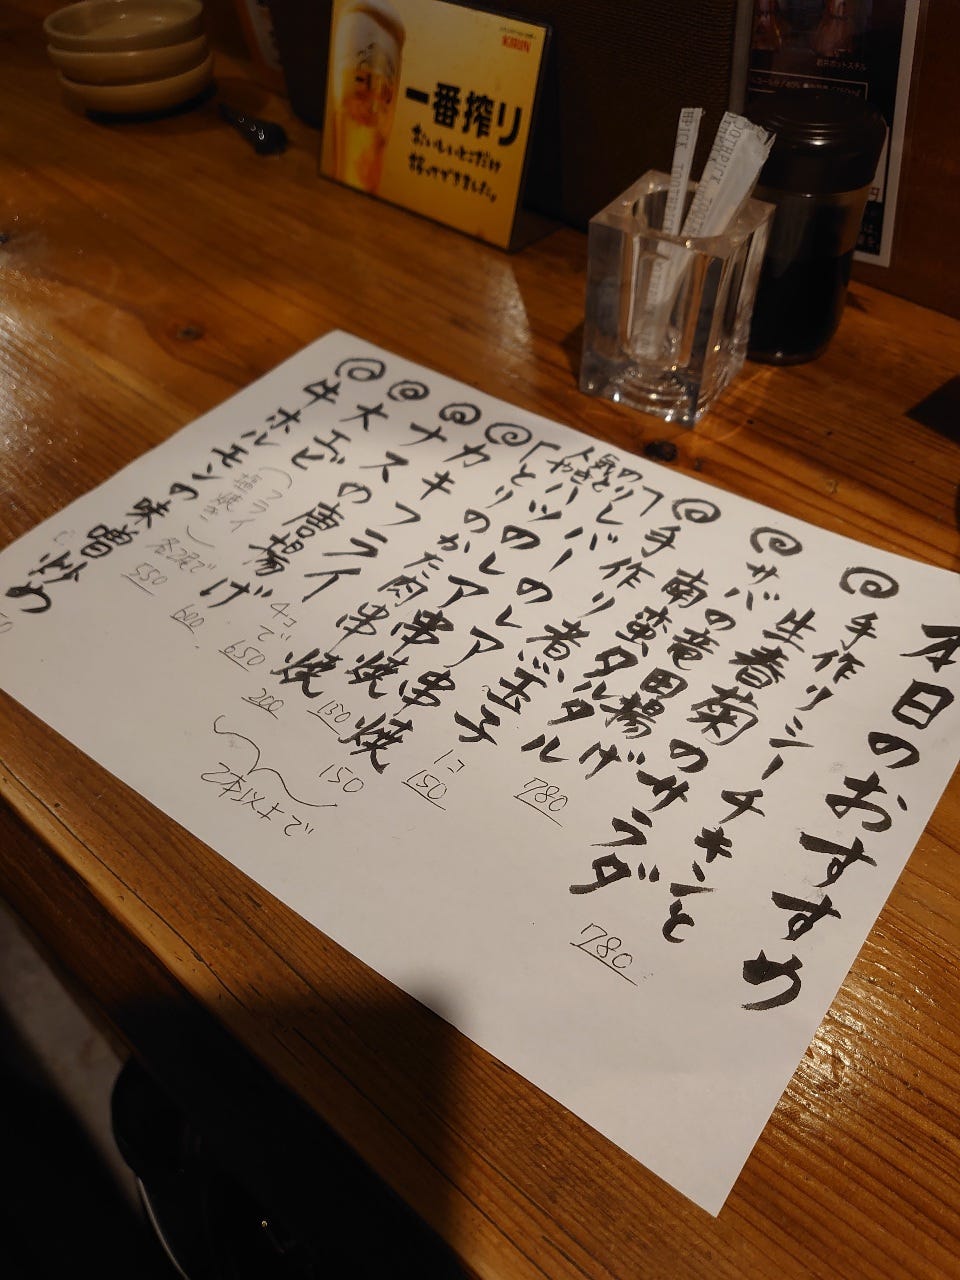 本日のおすすめ
手作りシーチキンと
生春菊のサラダ
780
サバの竜田揚げ
南蛮タルタル
780
手作り煮玉子
1コ
150
人気の
やきとり
レバーのレア串焼
150
ハツのレア串焼
130
とりのかた肉串焼
200
2本以上で
カキフライ
4コで
650
ナスの唐揚げ
600
大エビ
(フライ
塩焼き)
各2尾で
550
牛ホルモンの味噌炒め
一番搾り
おいしいとこだけ
搾ってできました。
KIRIN
TOOTHPICK